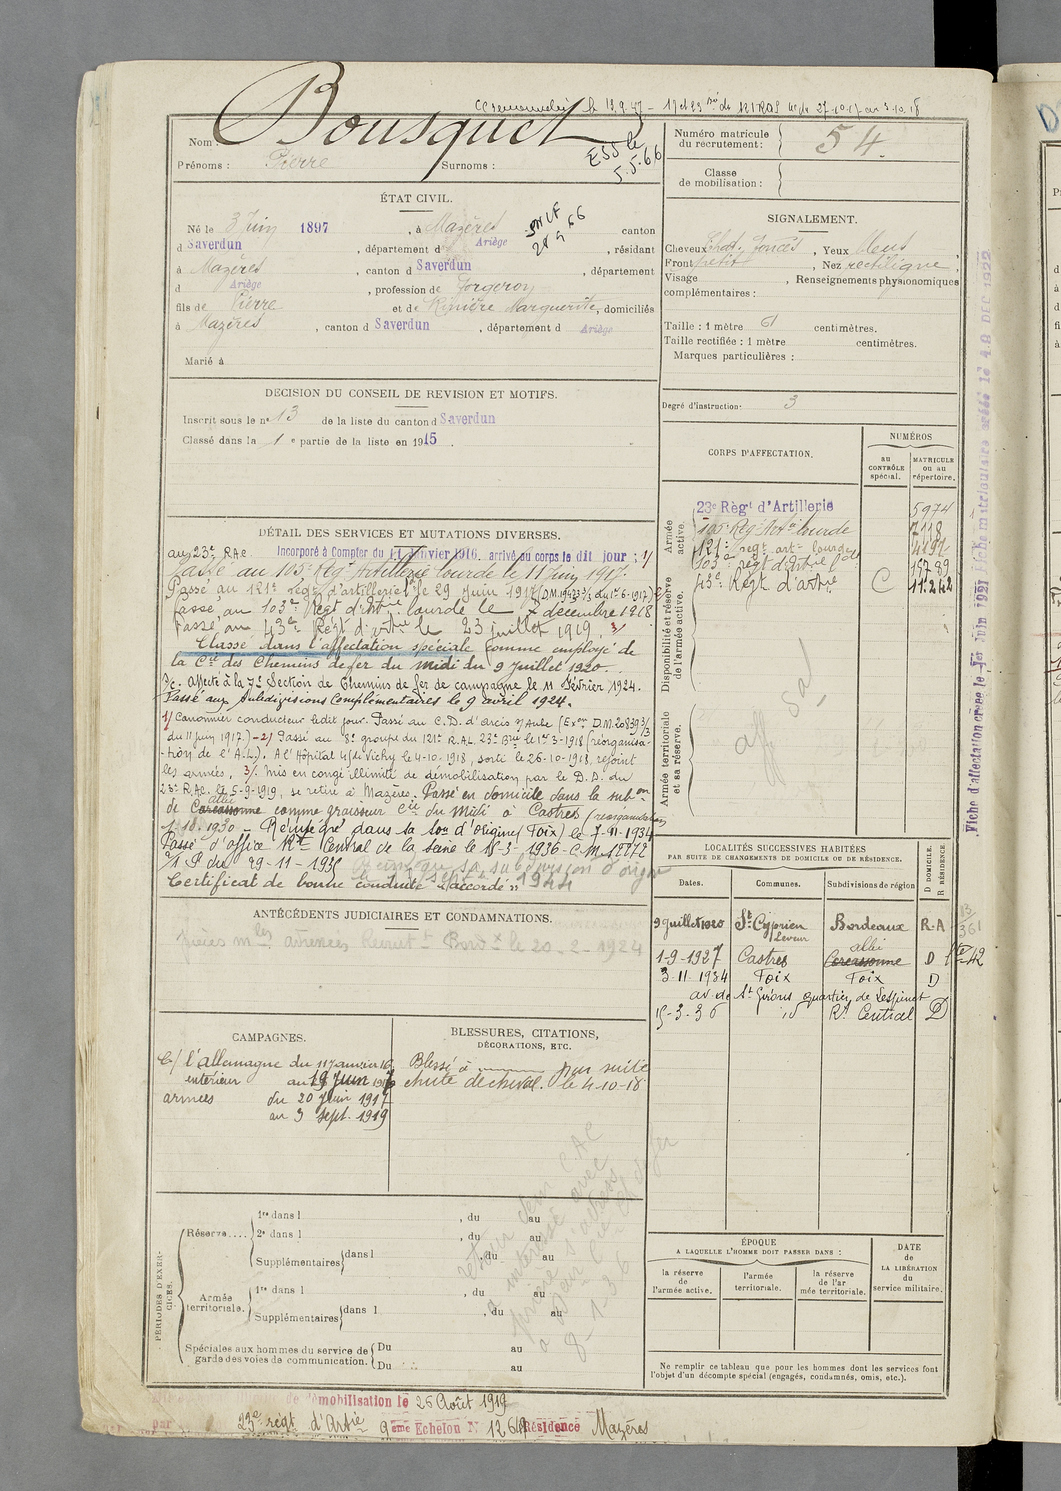 le 19.9.47 - 17 et 23 du 27.10.17 au 3.10.18
Nom : Bousquet
Prénoms : Pierre Surnoms :
ESS le
5.5.66
Numéro matricule
du recrutement : 54.
Classe
de mobilisation :
ÉTAT CIVIL.
Né le 3 Juin 1897, à Mazères canton
d Saverdun, département d Ariège, résidant
à Mazères, canton d Saverdun, département
d Ariège, profession de Forgeron
fils de Pierre et de Rivière Marguerite, domiciliés
à Mazères, canton d Saverdun, département d Ariège
Marié à
SNCF
28 5 66
SIGNALEMENT.
Cheveux Chat. foncés, Yeux bleus
Front petit, Nez rectiligne,
Visage , Renseignements physionomiques
complémentaires :
Taille : 1 mètre 61 centimètres.
Taille rectifiée : 1 mètre centimètres.
Marques particulières :
Degré d'instruction : 3
DECISION DU CONSEIL DE REVISION ET MOTIFS.
Inscrit sous le n° 13 de la liste du canton d Saverdun
Classé dans la 1e partie de la liste en 1915.
CORPS D'AFFECTATION.
NUMÉROS
au
CONTRÔLE
spécial.
MATRICULE
ou au
répertoire.
Armée
active.
23e Régt d'Artillerie 5974
105e Rég. Artie lourde 7118
121e regt art. lourde
103e régt d'Artrie Lde 15789
43e Régt d'artrie C 11242
Disponibilité et réserve
de l'armée active.
Armée territoriale
et sa réserve.
aff sal
DÉTAIL DES SERVICES ET MUTATIONS DIVERSES.
au 23e R.A.C. Incorporé à Compter du 11 Janvier 1916. arrivé au corps le dit jour ; 1/
Passé au 105e Rég. Artillerie lourde le 11 juin 1917.
Passé au 121e régt d'artillerie Lde le 29 Juin 1917
Passé au 103e Régt d'Artrie lourde le 7 décembre 1918
Passé au 43e Régt d'artrie le 23 juillet 1919, 3/
Classé dans l'affectation spéciale comme employé de
la Cie des Chemins de fer du Midi du 9 Juillet 1920.
S/c. affecté à la 7e Section de Chemins de fer de campagne le 11 Février 1924.
Passé aux Subdivisions Complémentaires le 9 avril 1924.
1/ Canonnier conducteur ledit jour. Passé au C.D. d'Arcis s/ Aube (Exon D.M. 20839 3/3
du 11 juin 1917.) - 2/ Passé au 8e groupe du 121e R.A.L. 23e Brie le 1er 3-1918 (réorganisa-
-tion de l'A.L.). A l'Hôpital 45 de Vichy le 4-10-1918, sorti le 26-10-1918, rejoint
les armées, 3/. Mis en congé illimité de démobilisation par le D.D. du
23e R.A.C. le 5-9-1919, se retire à Mazères. Passé en domicile dans la subon
de Carcassonne albi comme graisseur Cie du Midi à Castres (réorganisation
1-18-1930 - Réintégré dans sa son d'origine (Foix) le 7-11-1934
Passé d'office Rt Central de la Seine le 15-3-1936 - C.M. 12172
/1 P du 29-11-1935
sa subdivision d'origine
le 1 sept 1944
Certificat de bonne conduite "accordé"
LOCALITÉS SUCCESSIVES HABITÉES
PAR SUITE DE CHANGEMENTS DE DOMICILE OU DE RÉSIDENCE.
Dates.
Communes.
Subdivisions de région
D DOMICILE.
R RÉSIDENCE.
9 juillet 1920 St Cyprien Bordeaux R.A
1-9-1927 Castres Carcassonne albi D
3-11-1934 Foix Foix D
av. de St Girons quartier de Lespinet
15-3-36 id Rt Central D
ANTÉCÉDENTS JUDICIAIRES ET CONDAMNATIONS.
pièces mles adressées Recrutt Bordx le 20-2-1924
CAMPAGNES.
C/ l'allemagne du 11 Janvier 16
intérieur au 19 Juin 1917
armées du 20 Juin 1917
au 3 sept. 1919
BLESSURES, CITATIONS,
DÉCORATIONS, ETC.
Blessé à par suite
chute de cheval. le 4-10-18
PÉRIODES D'EXER-
CICES.
Réserve.... 1re dans l , du au
2e dans l , du au
Supplémentaires dans l , du au
Armée
territoriale. 1re dans l , du au
Supplémentaires dans l , du au
Spéciales aux hommes du service de
garde des voies de communication. Du au
Du au
8-1-36
ÉPOQUE
A LAQUELLE L'HOMME DOIT PASSER DANS :
la réserve
de
l'armée active.
l'armée
territoriale.
la réserve
de l'ar
mée territoriale.
DATE
de
LA LIBÉRATION
du
service militaire.
Ne remplir ce tableau que pour les hommes dont les services font
l'objet d'un décompte spécial (engagés, condamnés, omis, etc.).
Fiche d'affectation créée le 1er Juin 1921
démobilisation le 26 Août 1919
par 23e régt d'Artie 9ème Echelon N° Résidence Mazères